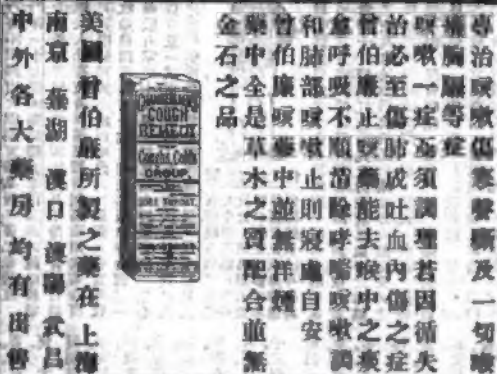 專治咳嗽傷寒聲嘶及一切喉
胸膈等症
咳嗽一症亟須調理若因循失
治必至傷肺成吐血內傷之症
曾伯廉止咳藥能去喉中之痰
呼吸不順清除哮喘咳嗽調
和肺部咳嗽止則寢處自安
曾伯廉咳藥中並無洋煙
藥中全是草木之質配合並無
金石之品
CHAMBERLAIN'S
COUGH
REMEDY
Coughs, Colds
CROUP,
SORE THROAT
美國曾伯廉所製之藥在上海
南京蕪湖漢口漢陽武昌
中外各大藥房均有出售